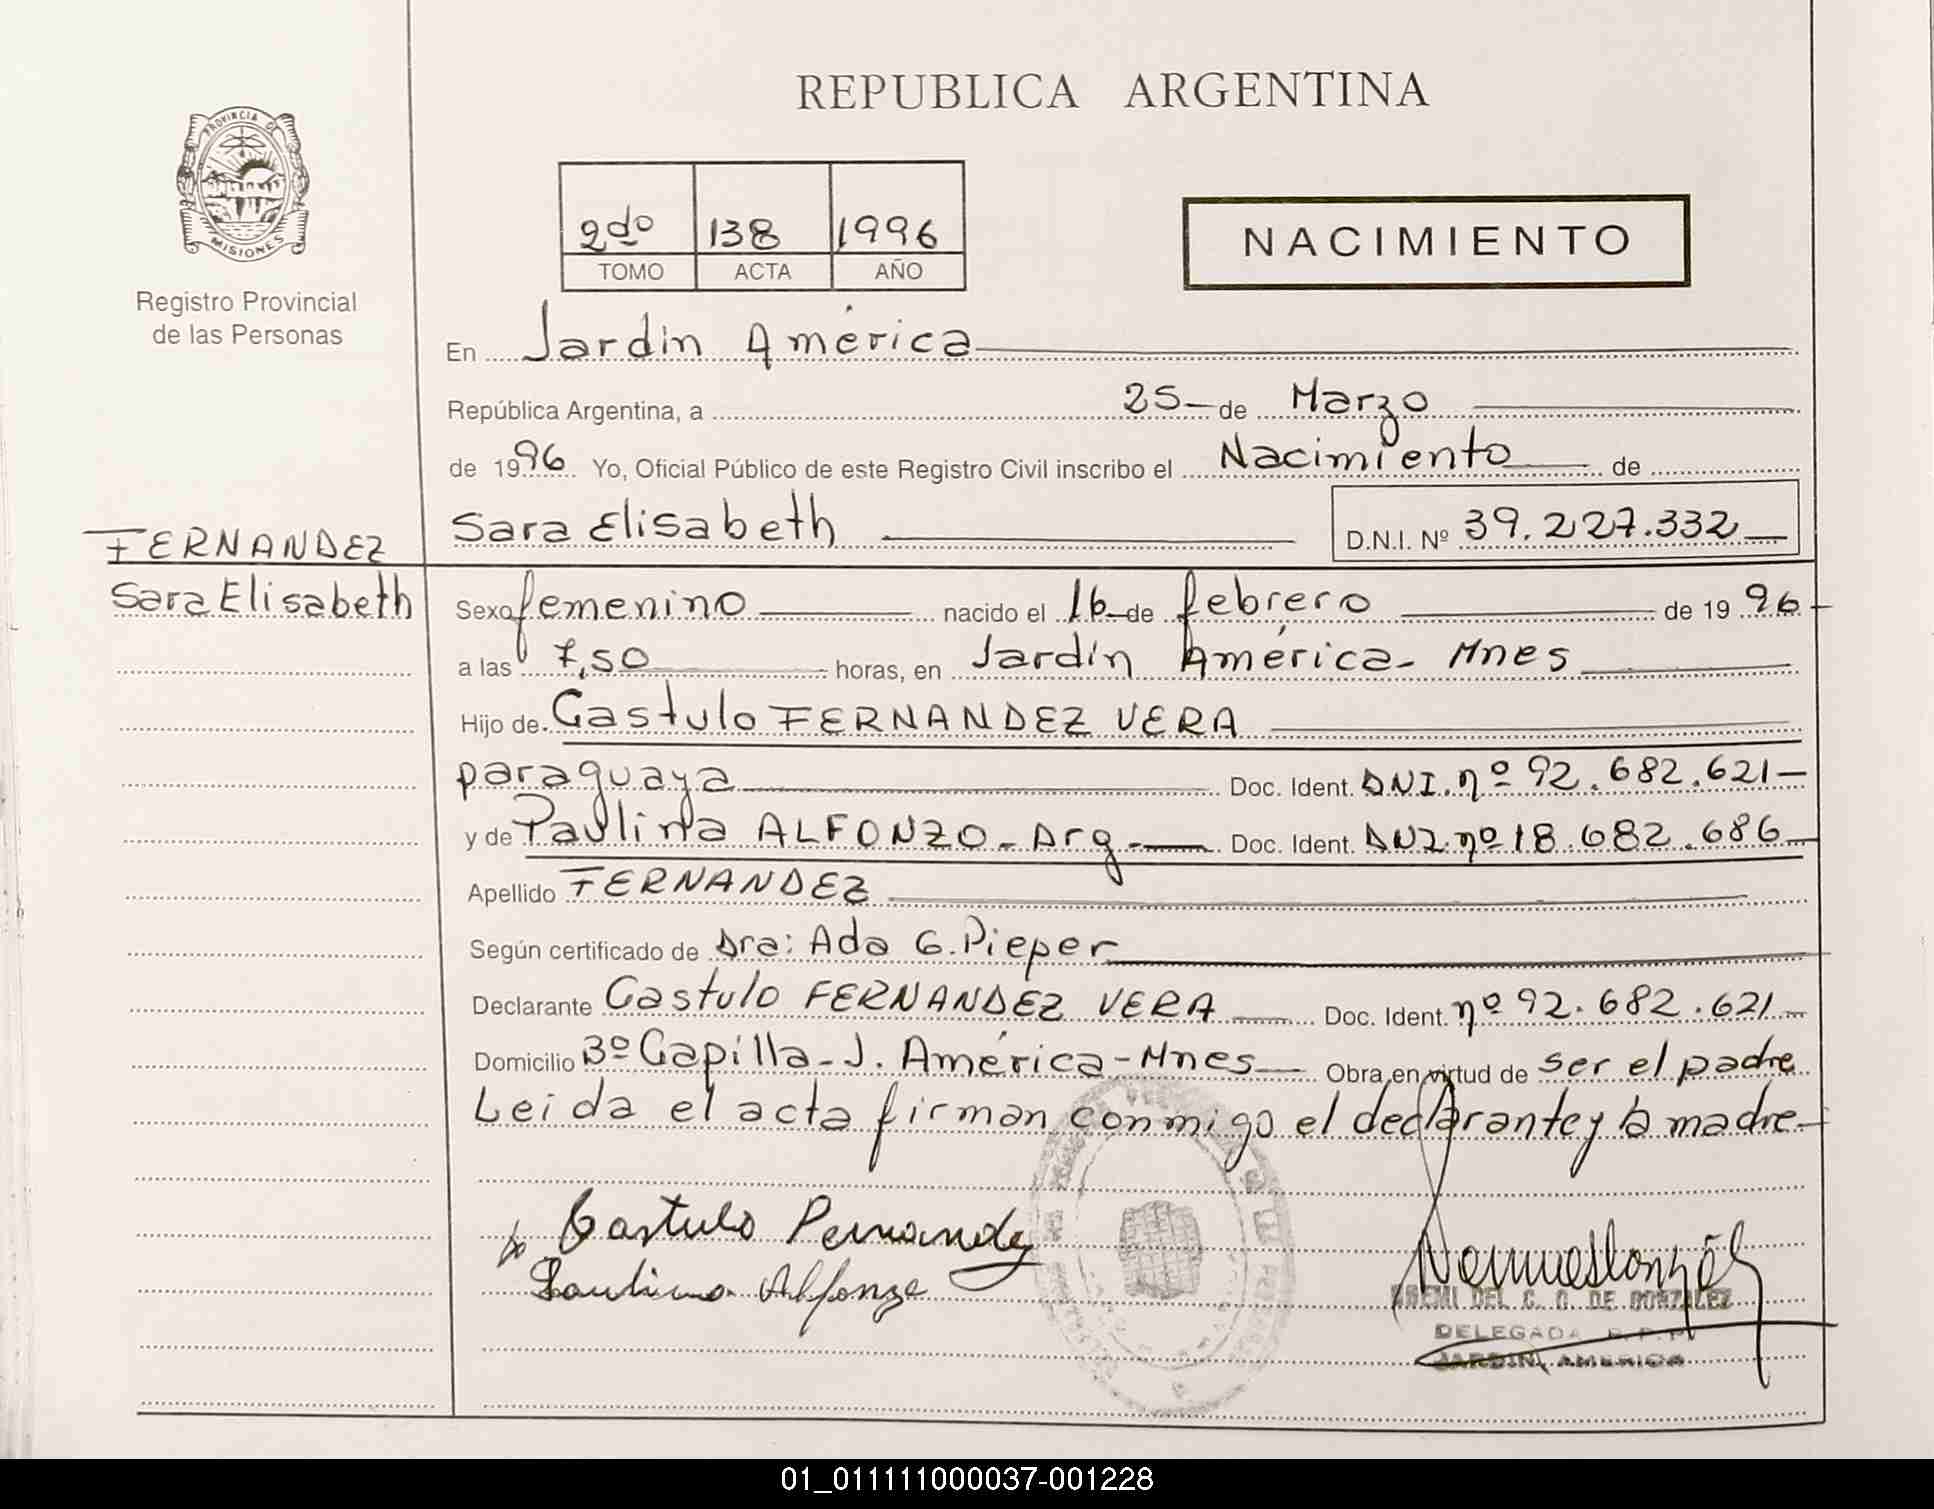 REPUBLICA ARGENTINA
PROVINCIA DE
MISIONES
Registro Provincial
de las Personas
2do 138 1996
TOMO ACTA AÑO
NACIMIENTO
En Jardín América
República Argentina, a 25 de Marzo
de 1996 Yo, Oficial Público de este Registro Civil inscribo el Nacimiento de
Sara Elisabeth D.N.I. Nº 39.227.332
FERNANDEZ
Sara Elisabeth
Sexo femenino nacido el 16 de febrero de 1996
a las 7,50 horas, en Jardín América - Mnes
Hijo de Castulo FERNANDEZ VERA
paraguaya Doc. Ident. DNI. nº 92.682.621
y de Paulina ALFONZO - Arg - Doc. Ident. DNI nº 18.682.686
Apellido FERNANDEZ
Según certificado de Dra: Ada G. Pieper
Declarante Castulo FERNANDEZ VERA Doc. Ident. nº 92.682.621
Domicilio Bº Capilla - J. América - Mnes Obra en virtud de ser el padre
Leida el acta firman conmigo el declarante y la madre
Castulo Fernandez
Paulina Alfonzo
DEL C. G. DE GONZALEZ
DELEGADA R.P.P.
JARDIN AMERICA
01_011111000037-001228